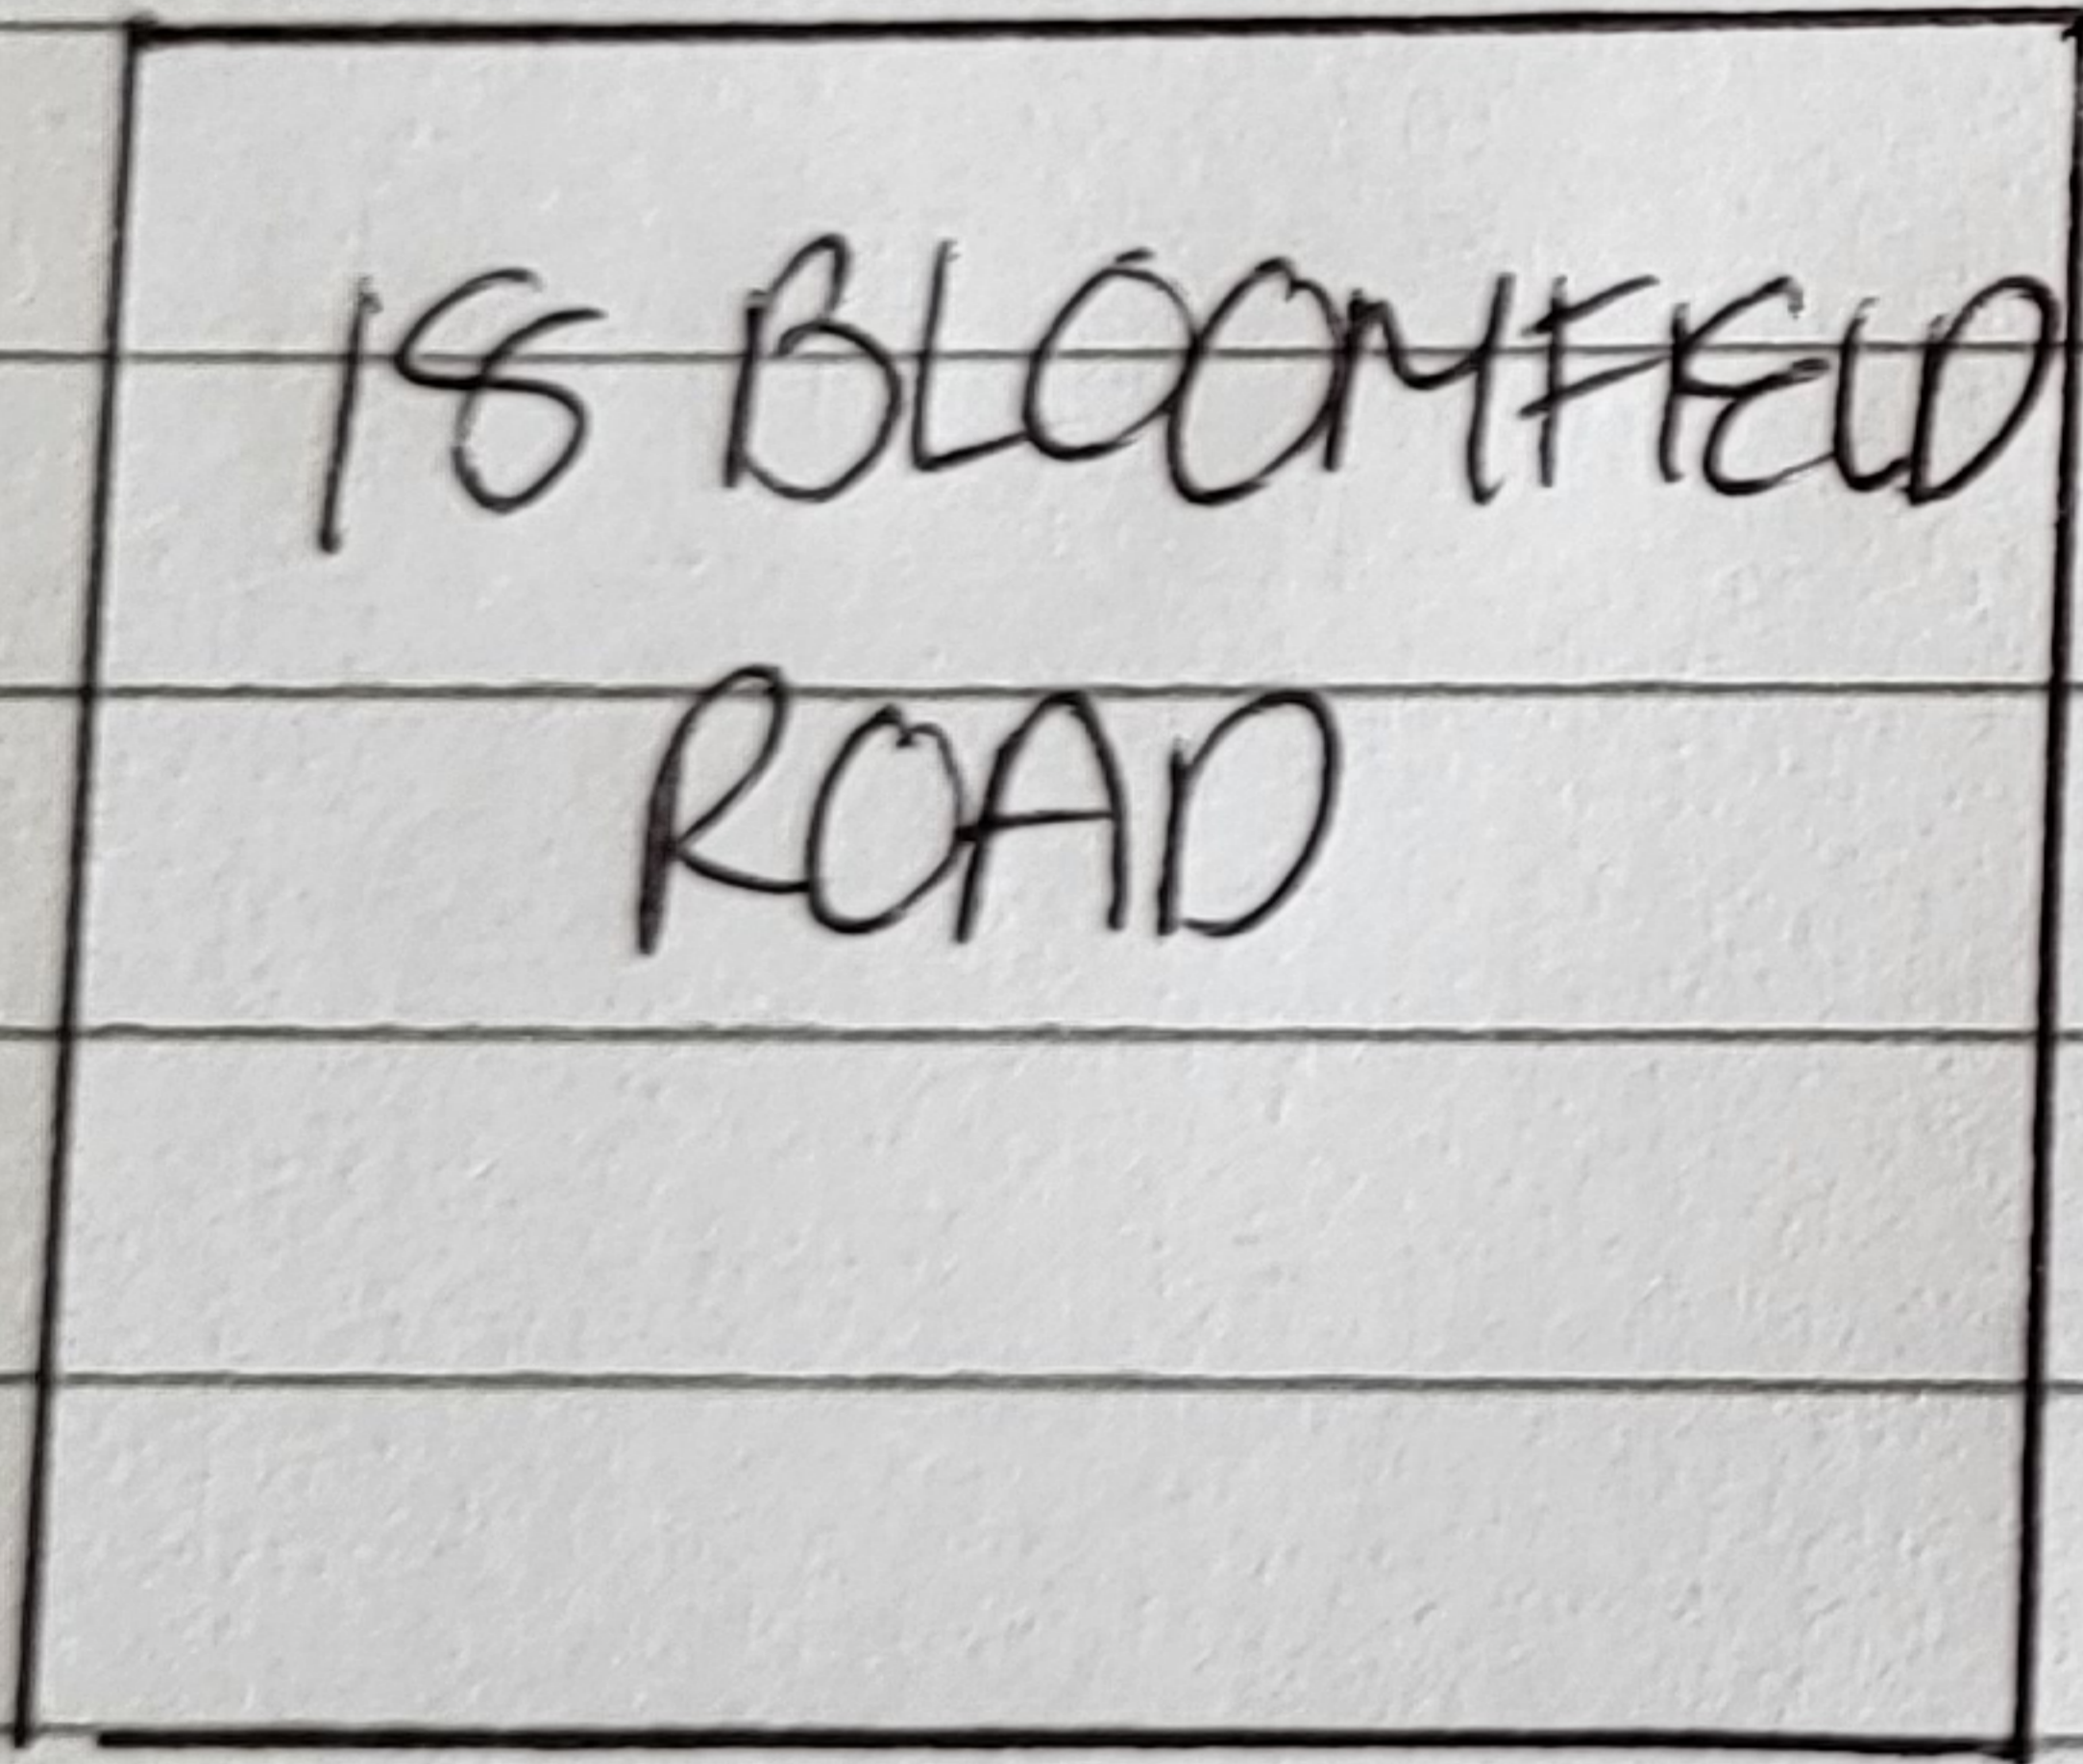 18 BLOOMFIELD
ROAD